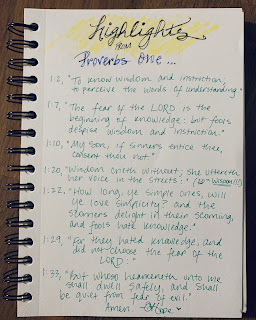 highlights
from
Proverbs One...
1:2, "To know wisdom and instruction;
to perceive the words of understanding."
1:7, "The fear of the LORD is the
beginning of knowledge: but fools
despise wisdom and instruction."
1:10, "My son, if sinners entice thee,
consent thou not."
1:20, "Wisdom crieth without; she uttereth
her voice in the streets:"
1:22, "How long, ye simple ones, will
ye love simplicity? and the
scorners delight in their scorning,
and fools hate knowledge."
1:29, "For they hated knowledge, and
did not choose the fear of the
LORD:"
1:33, "But whoso hearkeneth unto me
shall dwell safely, and shall
be quiet from fear of evil."
Amen.